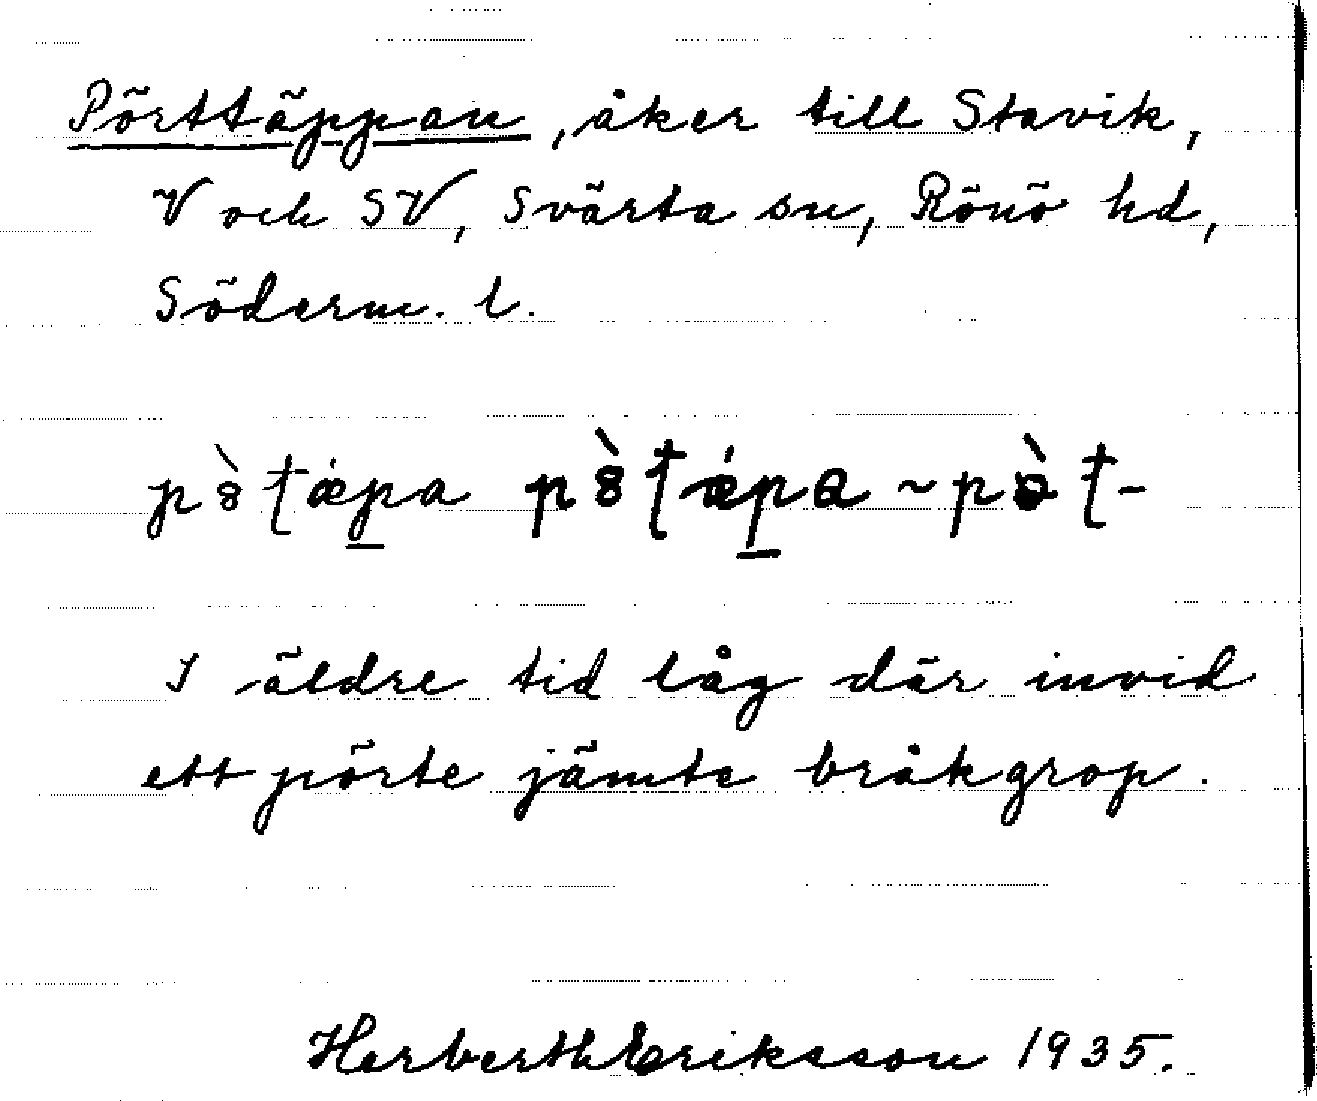 Pörttäppan, åker till Stavik,
V och SV, Svärta sn, Rönö hd,
Söderm. l.
pꝏ̀ʈǽpa pꝏ̀ʈǽpa ~ pə̀ʈ-
I äldre tid låg där invid
ett pörte jämte bråkgrop.
Herbert Eriksson 1935.